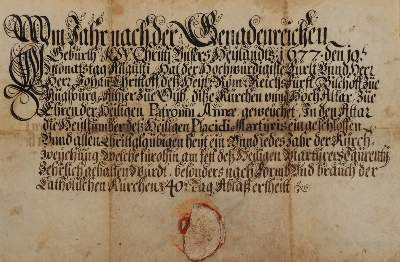 Im Jahr nach der Genadenreichen
Geburth JESV Christi Unsers Heylands 1677 den 19
Monatstag Augusti Hat der Hochwürdigiste Fürst Vund Herr
Herr Johan Christoff des Heyl: Röm: Reichs Fürst Bischoff zue
Augspurg Hieher zue dise Kürchen vund Hoch Altar zue
Ehren der Heiligen Patronin Annæ geweichet, In den Altar
die Heylthumber deß Heiligen Placidi Martyris ein geschlossen
Vnd allen Christglaubigen heut ein Vnd iedes Jahr der Kürch
weyhung welche fürohin am fest deß Heiligen Martyrers Laurentij
Jehrlich gehalten Würdt, besonders nach form Vnd brauch der
Catholischen Kürchen 40 Tag Ablaß ertheilt